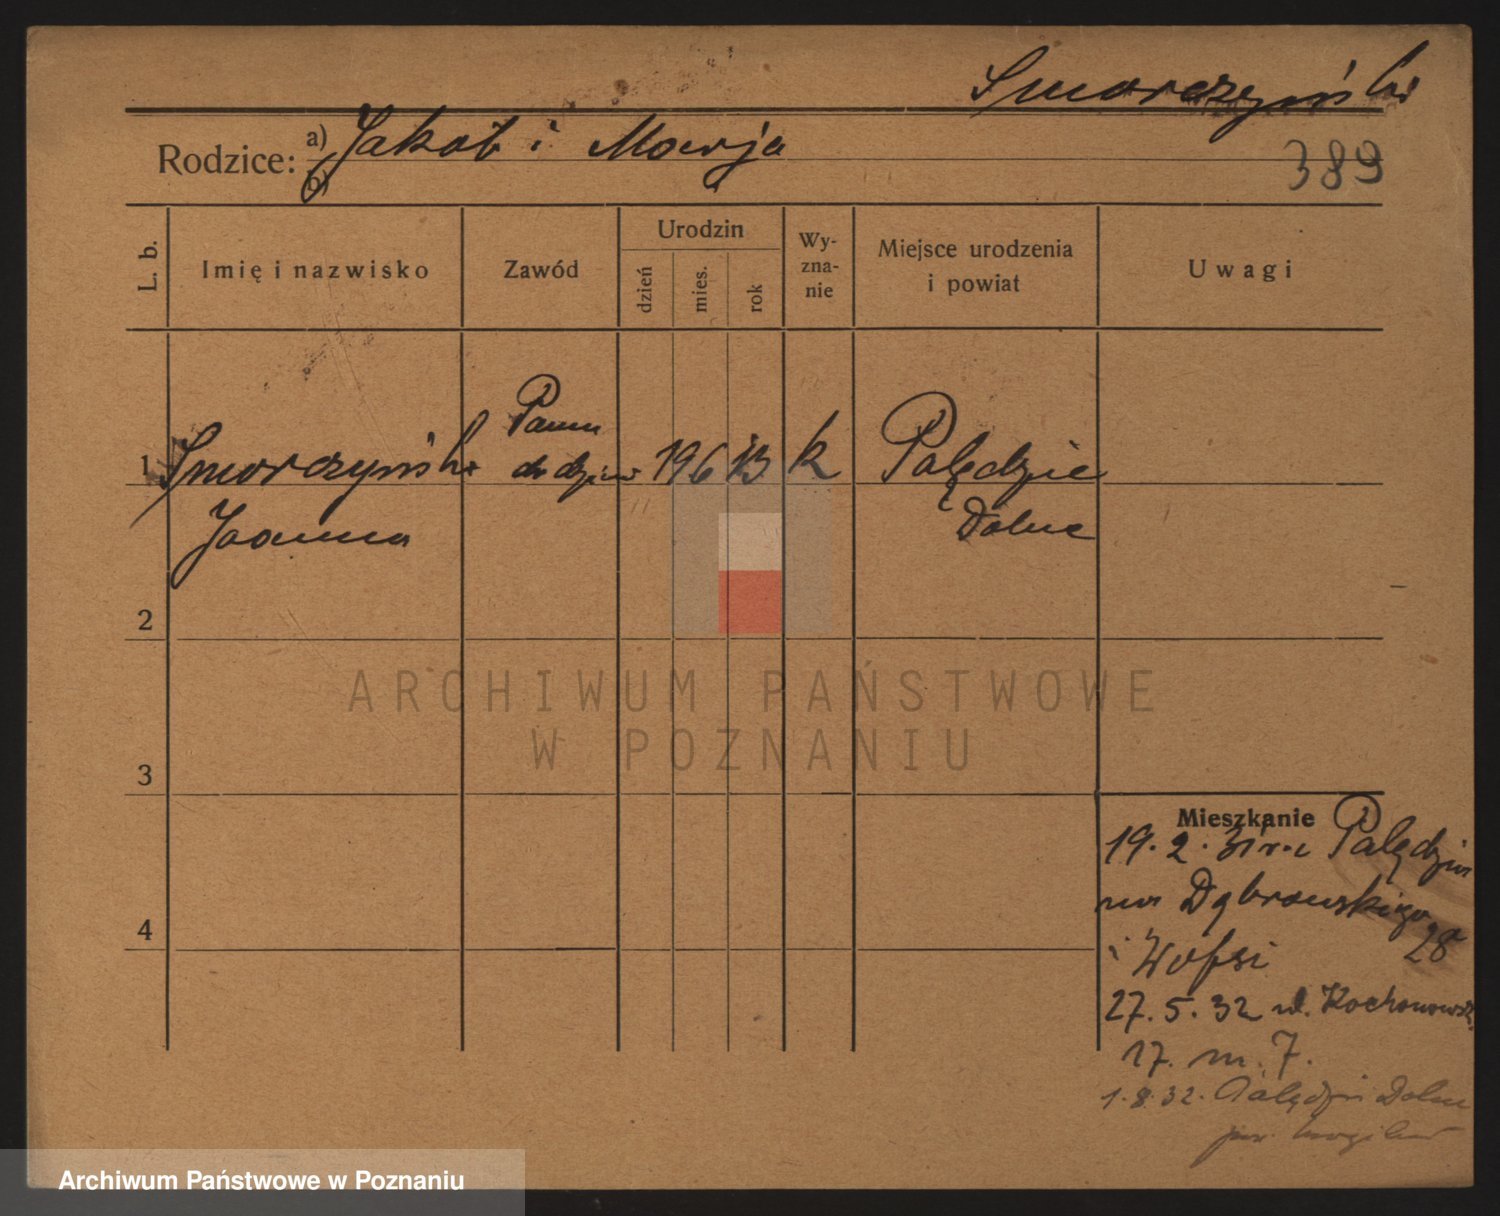 Smorczyńska
Rodzice: a) Jakób i Marja
b)
389
L. b.
Imię i nazwisko
Zawód
Urodzin
dzień
mies.
rok
Wy-
zna-
nie
Miejsce urodzenia
i powiat
Uwagi
1 Smorczyńska 19 6 13 k Palędzie
Joanna Dolne
2
3
4
Mieszkanie
19.2.31 r. z Palędzia
na Dąbrowskiego
28
i
27.5.32 ul. Kochanowsk.
17. m. 7.
1.8.32. Palędzie Dolne
pow.
ARCHIWUM PAŃSTWOWE
W POZNANIU
Archiwum Państwowe w Poznaniu